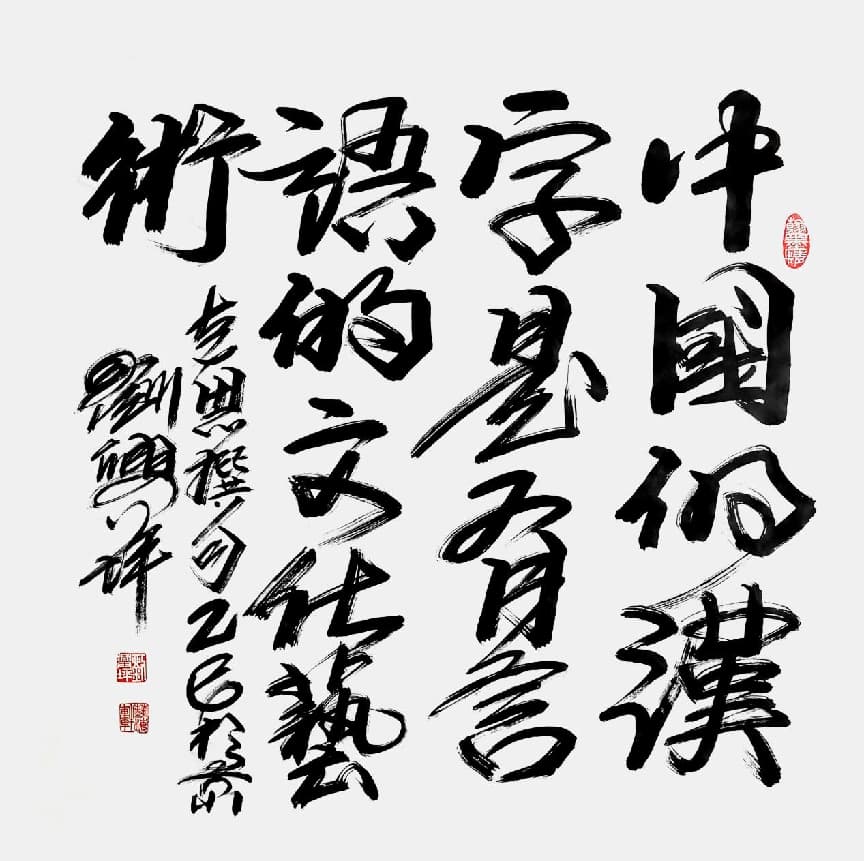 中國的漢
字是有言
語的文化藝
術
思撰句乙巳於
劉興祥